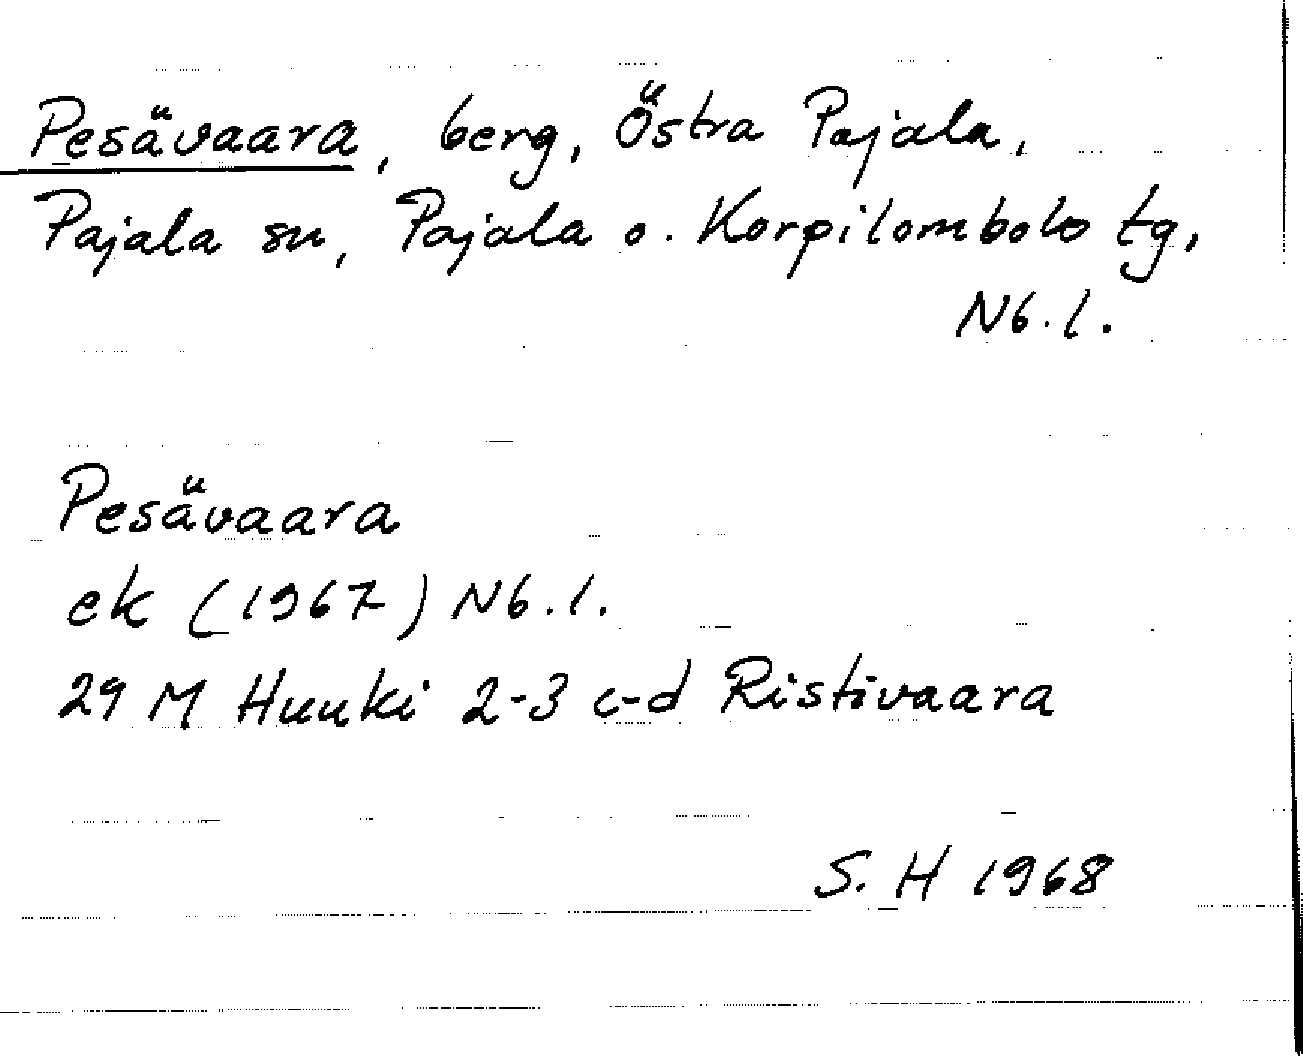 Pesävaara, berg, Östra Pajala,
Pajala sn, Pajala o. Korpilombolo tg,
Nb. l.
Pesävaara
ek (1967) Nb. l.
29 M Huuki 2-3 c-d Ristivaara
S. H 1968